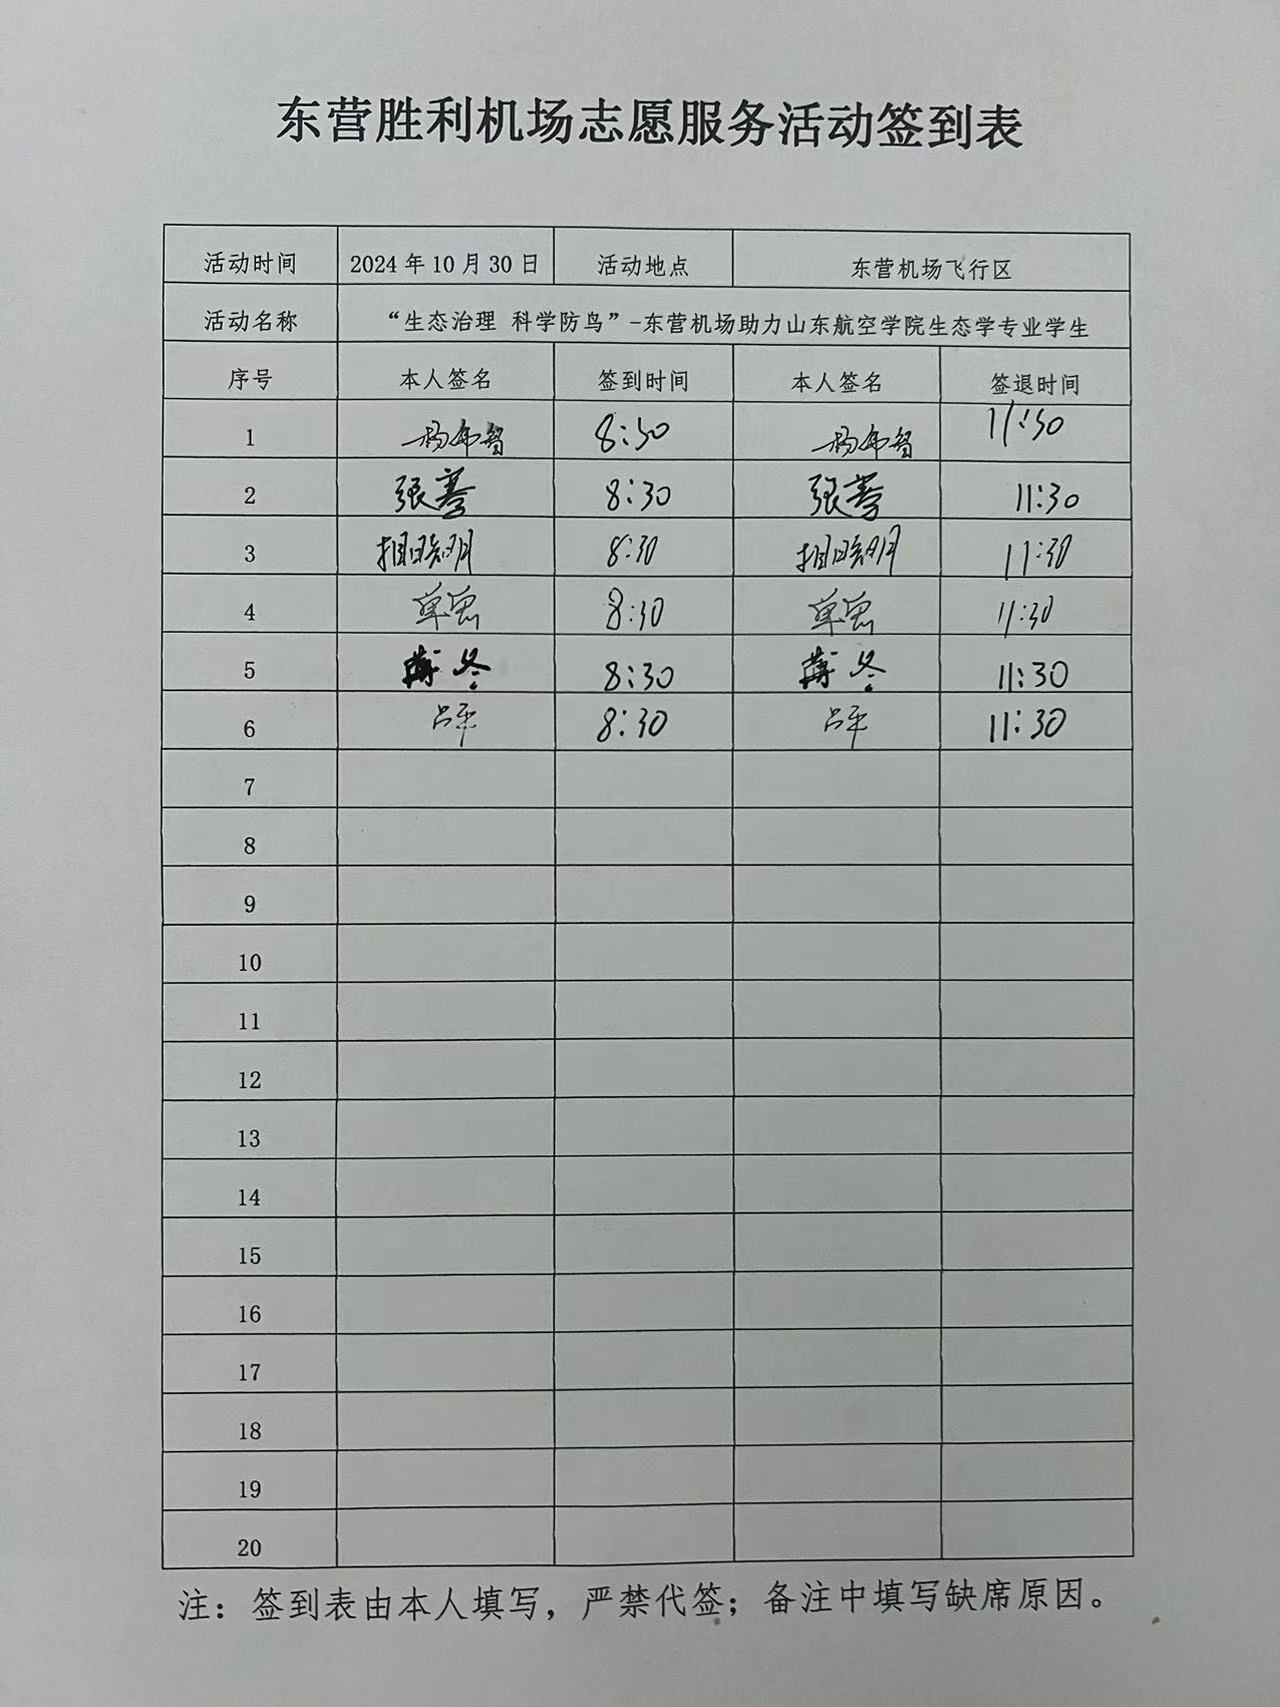 东营胜利机场志愿服务活动签到表
活动时间 2024年10月30日 活动地点 东营机场飞行区
活动名称 “生态治理 科学防鸟”-东营机场助力山东航空学院生态学专业学生
序号 本人签名 签到时间 本人签名 签退时间
1 8:30 11:30
2 张善 8:30 张善 11:30
3 8:30 11:30
4 8:30 11:30
5 薄冬 8:30 薄冬 11:30
6 吕平 8:30 吕平 11:30
7
8
9
10
11
12
13
14
15
16
17
18
19
20
注：签到表由本人填写，严禁代签；备注中填写缺席原因。